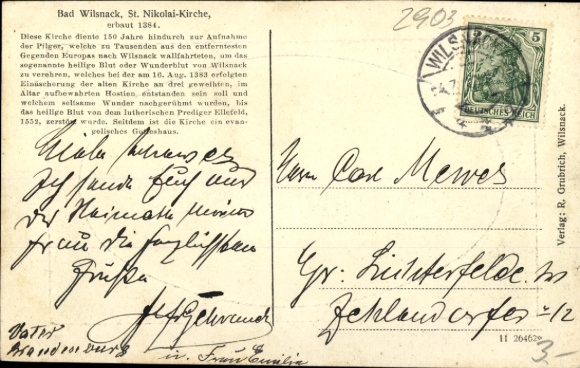 Bad Wilsnack, St. Nikolai-Kirche,
erbaut 1384.
Diese Kirche diente 150 Jahre hindurch zur Aufnahme
der Pilger, welche zu Tausenden aus den entferntesten
Gegenden Europas nach Wilsnack wallfahrteten, um das
sogenannte heilige Blut oder Wunderblut von Wilsnack
zu verehren, welches bei der am 16. Aug. 1383 erfolgten
Einäscherung der alten Kirche an drei geweihten, im
Altar aufbewahrten Hostien, entstanden sein soll und
welchem seltsame Wunder nachgerühmt wurden, bis
das heilige Blut von dem lutherischen Prediger Ellefeld,
1552, zerstört wurde. Seitdem ist die Kirche ein evan-
gelisches Gotteshaus.
2903
5
WILSNACK
DEUTSCHES REICH
Ich sende Euch aus
der Heimath meiner
Frau die
Grüße
Vater
Brandenburg
u. Frau Emilie
Herrn Carl Mewes
Gr. Lichterfelde
Zehlendorfer 12
Verlag: R. Grubrich, Wilsnack.
11 26462
3-